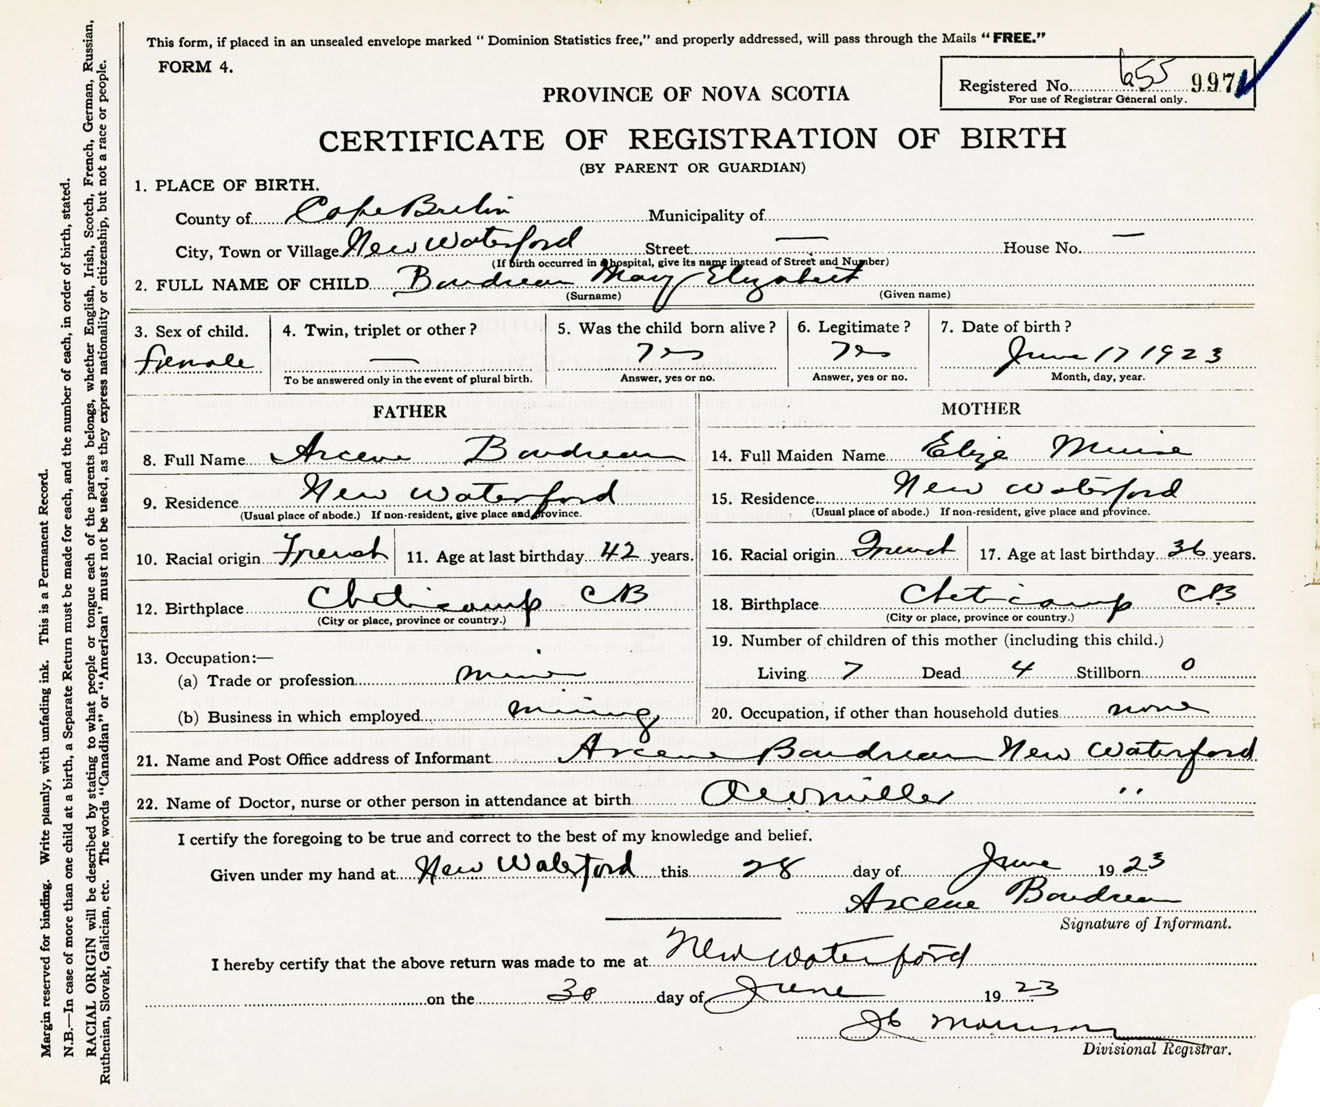 This form, if placed in an unsealed envelope marked " Dominion Statistics free," and properly addressed, will pass through the Mails "FREE."
FORM 4.
Registered No. 655 997
For use of Registrar General only.
PROVINCE OF NOVA SCOTIA
CERTIFICATE OF REGISTRATION OF BIRTH
(BY PARENT OR GUARDIAN)
1. PLACE OF BIRTH.
County of Cape Breton Municipality of
City, Town or Village New Waterford Street — House No. —
(If birth occurred in a hospital, give its name instead of Street and Number)
2. FULL NAME OF CHILD Boudreau Mary Elizabeth
(Surname) (Given name)
3. Sex of child. 4. Twin, triplet or other? 5. Was the child born alive? 6. Legitimate? 7. Date of birth?
female — Yes Yes June 17 1923
To be answered only in the event of plural birth. Answer, yes or no. Answer, yes or no. Month, day, year.
FATHER MOTHER
8. Full Name Arcene Boudreau 14. Full Maiden Name Elize Muise
9. Residence New Waterford 15. Residence New Waterford
(Usual place of abode.) If non-resident, give place and province. (Usual place of abode.) If non-resident, give place and province.
10. Racial origin French 11. Age at last birthday 42 years. 16. Racial origin French 17. Age at last birthday 36 years.
12. Birthplace Cheticamp CB 18. Birthplace Cheticamp CB
(City or place, province or country.) (City or place, province or country.)
19. Number of children of this mother (including this child.)
13. Occupation:—
(a) Trade or profession miner Living 7 Dead 4 Stillborn 0
(b) Business in which employed mining 20. Occupation, if other than household duties none
21. Name and Post Office address of Informant Arcene Boudreau New Waterford
22. Name of Doctor, nurse or other person in attendance at birth Miller "
I certify the foregoing to be true and correct to the best of my knowledge and belief.
Given under my hand at New Waterford this 28 day of June 1923
Arcene Boudreau
Signature of Informant.
I hereby certify that the above return was made to me at New Waterford
on the 30 day of June 1923
Morrison
Divisional Registrar.
Margin reserved for binding. Write plainly, with unfading ink. This is a Permanent Record.
N.B.—In case of more than one child at a birth, a Separate Return must be made for each, and the number of each, in order of birth, stated.
RACIAL ORIGIN will be described by stating to what people or tongue each of the parents belongs, whether English, Irish, Scotch, French, German, Russian,
Ruthenian, Slovak, Galician, etc. The words "Canadian" or "American" must not be used, as they express nationality or citizenship, but not a race or people.